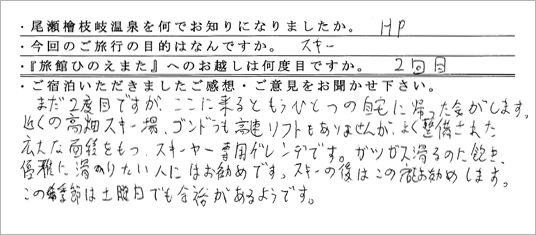 ・尾瀬檜枝岐温泉を何でお知りになりましたか。 HP
・今回のご旅行の目的はなんですか。 スキー
・『旅館ひのえまた』へのお越しは何度目ですか。 2回目
・ご宿泊いただきましたご感想・ご意見をお聞かせ下さい。
まだ2度目ですが、ここに来るともうひとつの自宅に帰った気がします。
近くの高畑スキー場、ゴンドラも高速リフトもありませんが、よく整備された
広大な面積をもつスキーヤー専用ゲレンデです。ガツガツ滑るのに飽き、
優雅に滑りたい人にはお勧めです。スキーの後はこの宿お勧めします。
この季節は土曜日でも余裕があるようです。